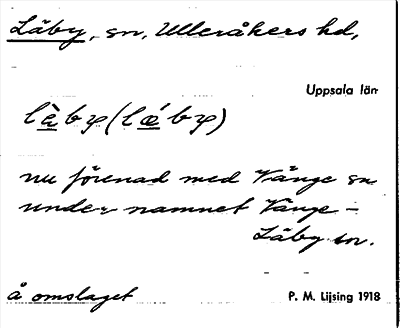 Läby, sn, Ulleråkers hd,
Uppsala län
nu förenad med Vänge sn
under namnet Vänge-
Läby sn.
å omslaget
P. M. Lijsing 1918